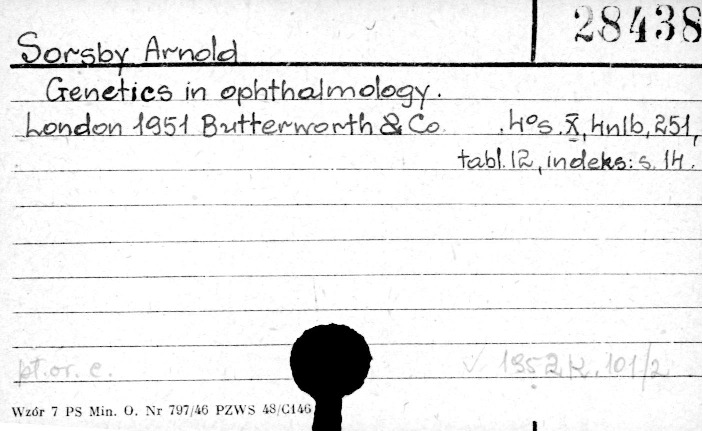 28438
Sorsby Arnold
Genetics in ophthalmology.
London 1951 Butterworth & Co. 4°s. X, 4nlb, 251,
tabl. 12, indeks: s. 14.
pł. or. c.
√ 1952 K. 101/2
Wzór 7 PS Min. O. Nr 797/46 PZWS 48/C146